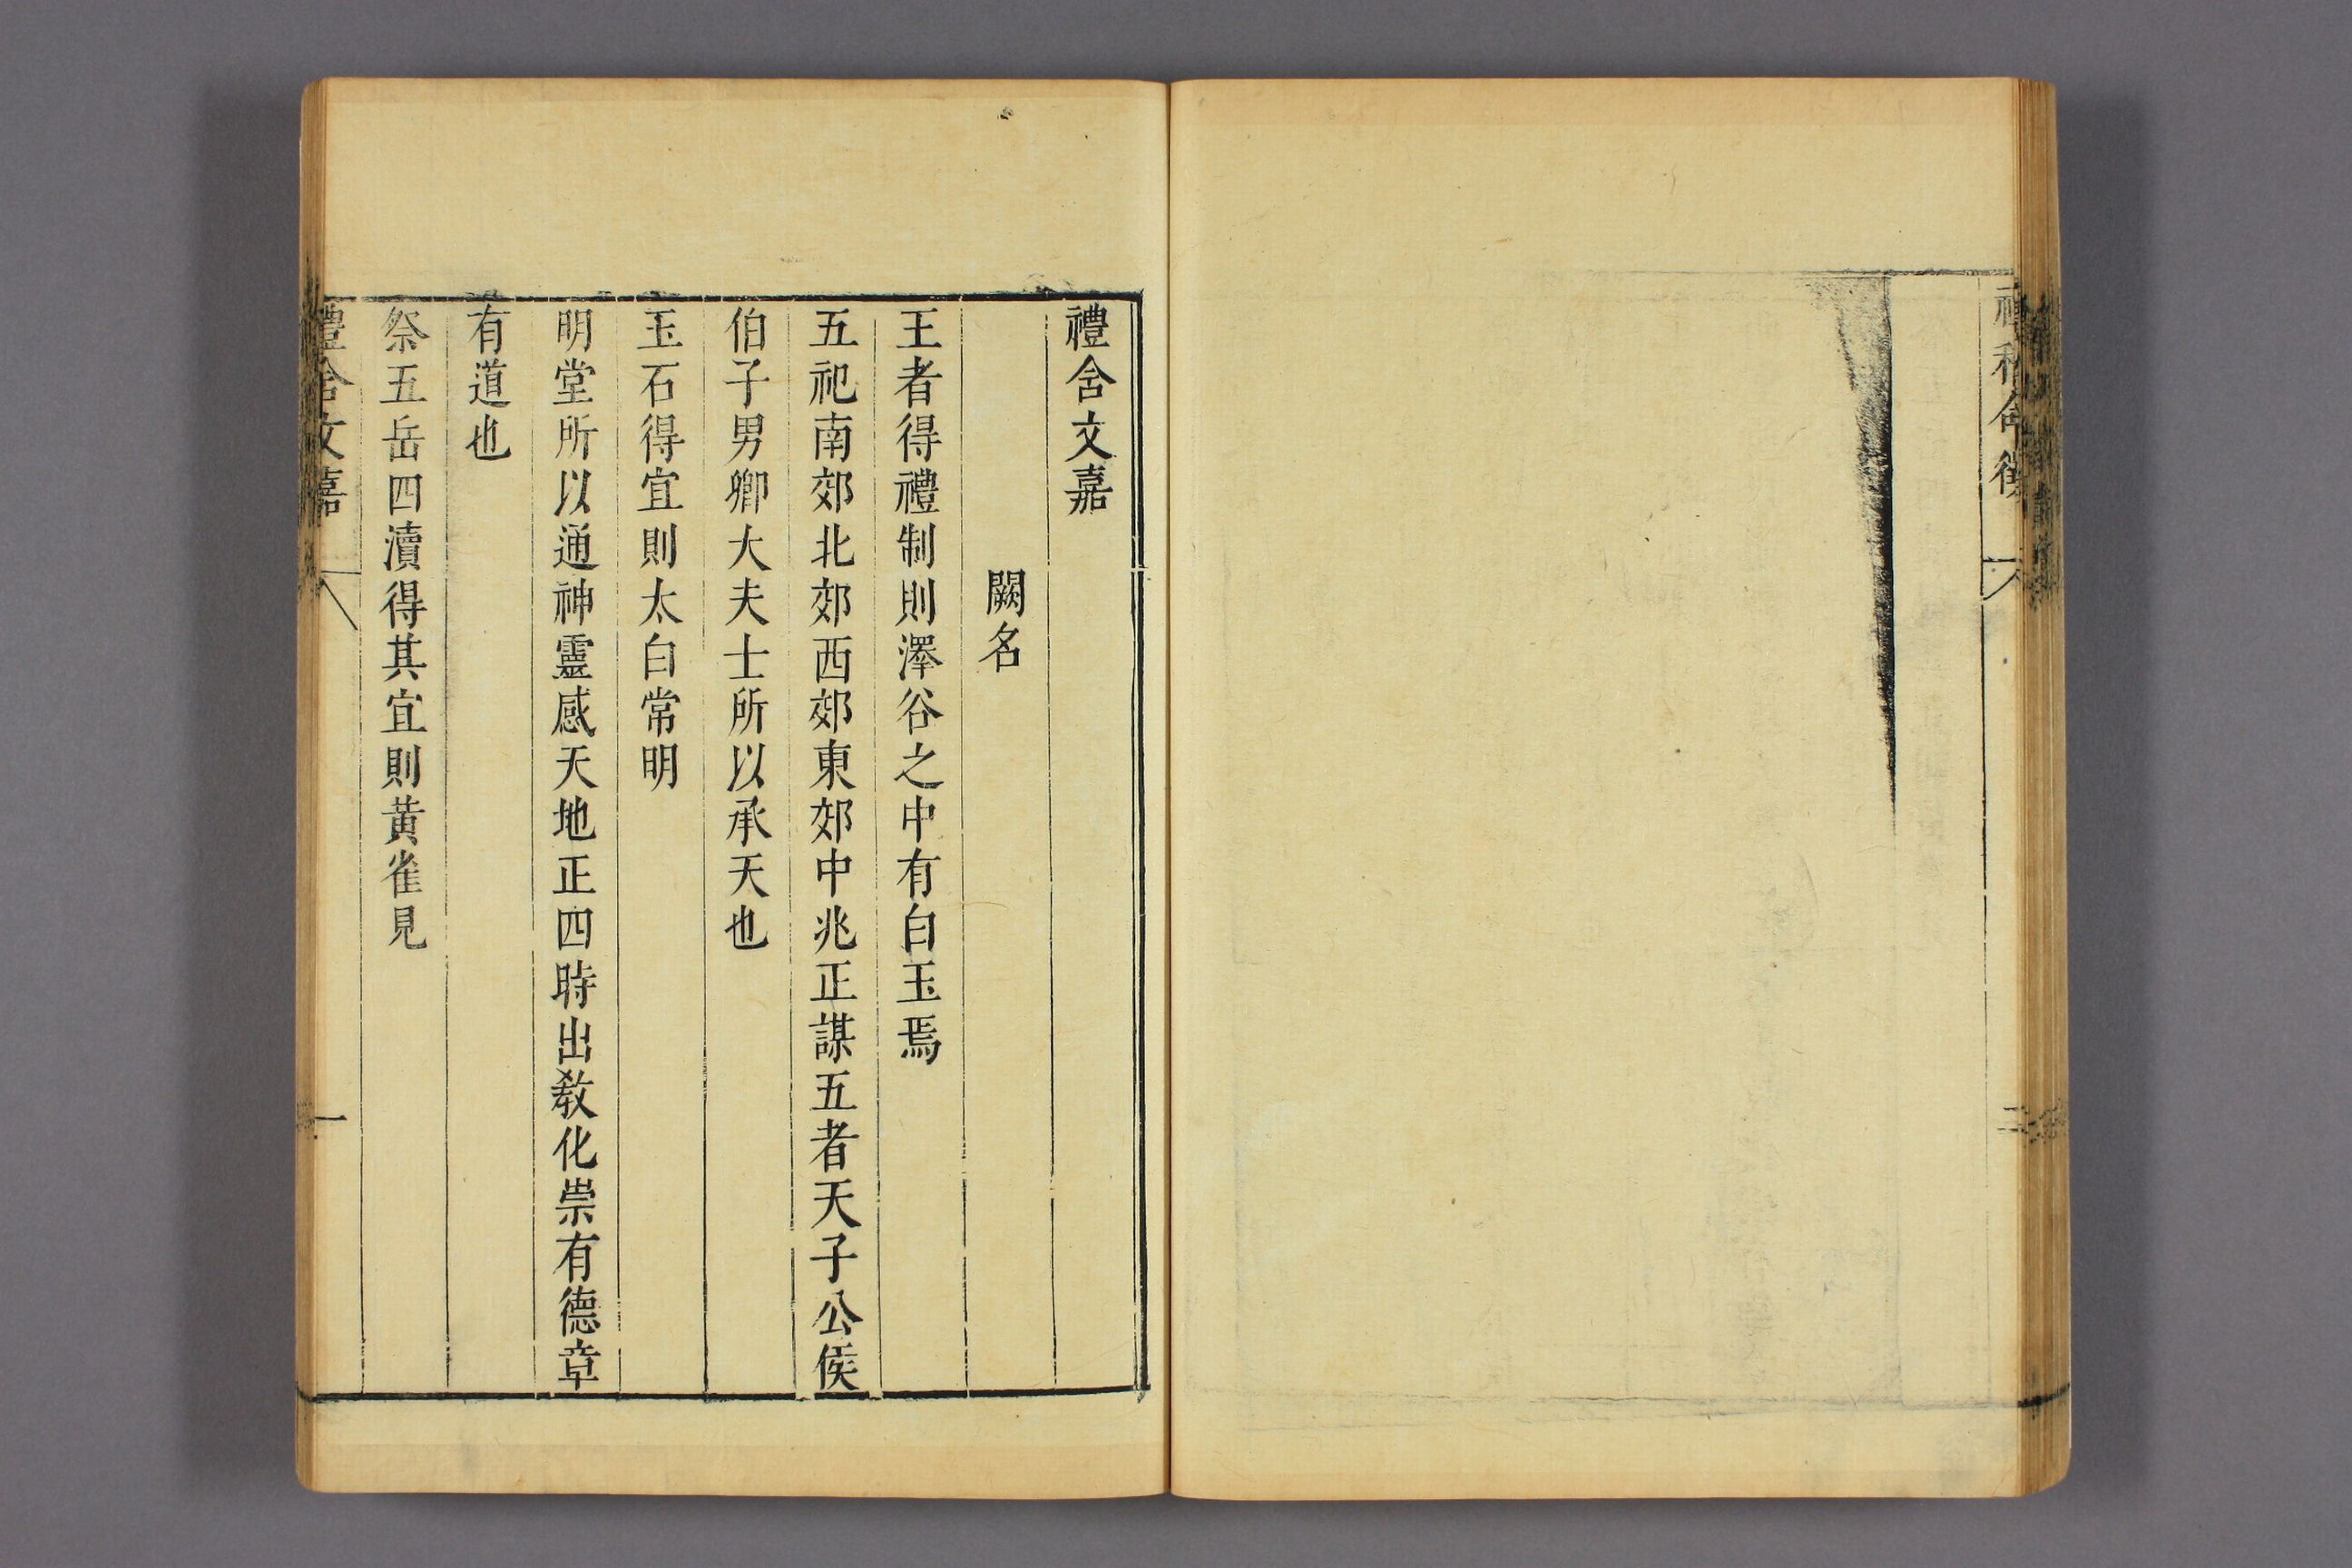 禮含文嘉
闕名
王者得禮制則澤谷之中有白玉焉
五祀南郊北郊西郊東郊中兆正謀五者天子公侯
伯子男卿大夫士所以承天也
玉石得宜則太白常明
明堂所以通神靈感天地正四時出教化崇有德章
有道也
祭五岳四瀆得其宜則黃雀見
禮含文嘉
一